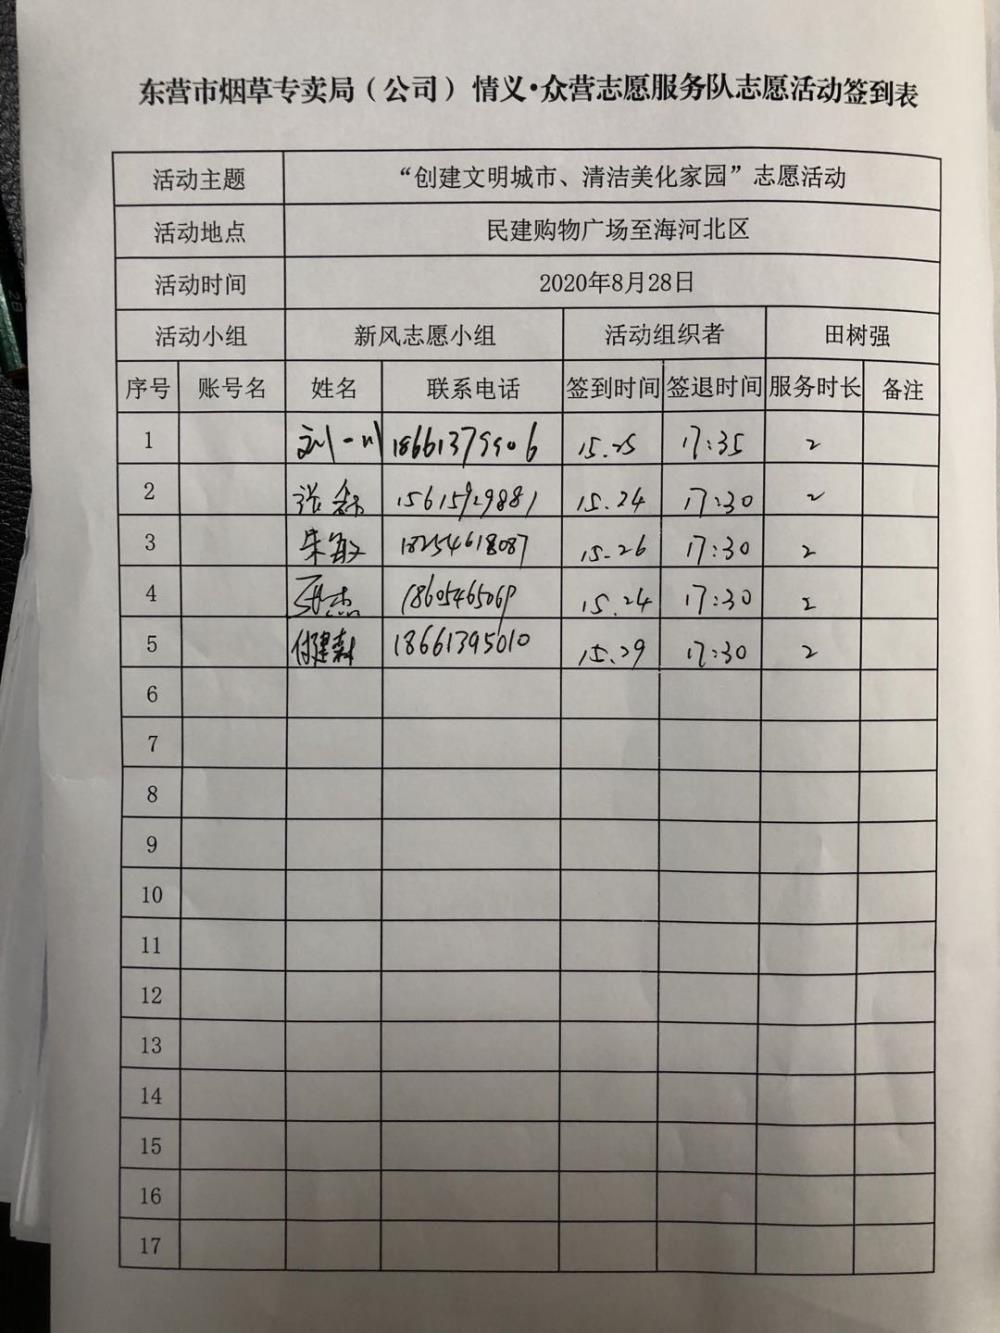 东营市烟草专卖局（公司）情义·众营志愿服务队志愿活动签到表
活动主题 “创建文明城市、清洁美化家园”志愿活动
活动地点 民建购物广场至海河北区
活动时间 2020年8月28日
活动小组 新风志愿小组 活动组织者 田树强
序号 账号名 姓名 联系电话 签到时间 签退时间 服务时长 备注
1 刘一川 15.25 17:35 2
2 15615929881 15.24 17:30 2
3 朱敏 18254618087 15.26 17:30 2
4 18605465069 15.24 17:30 2
5 18661395010 15.29 17:30 2
6
7
8
9
10
11
12
13
14
15
16
17